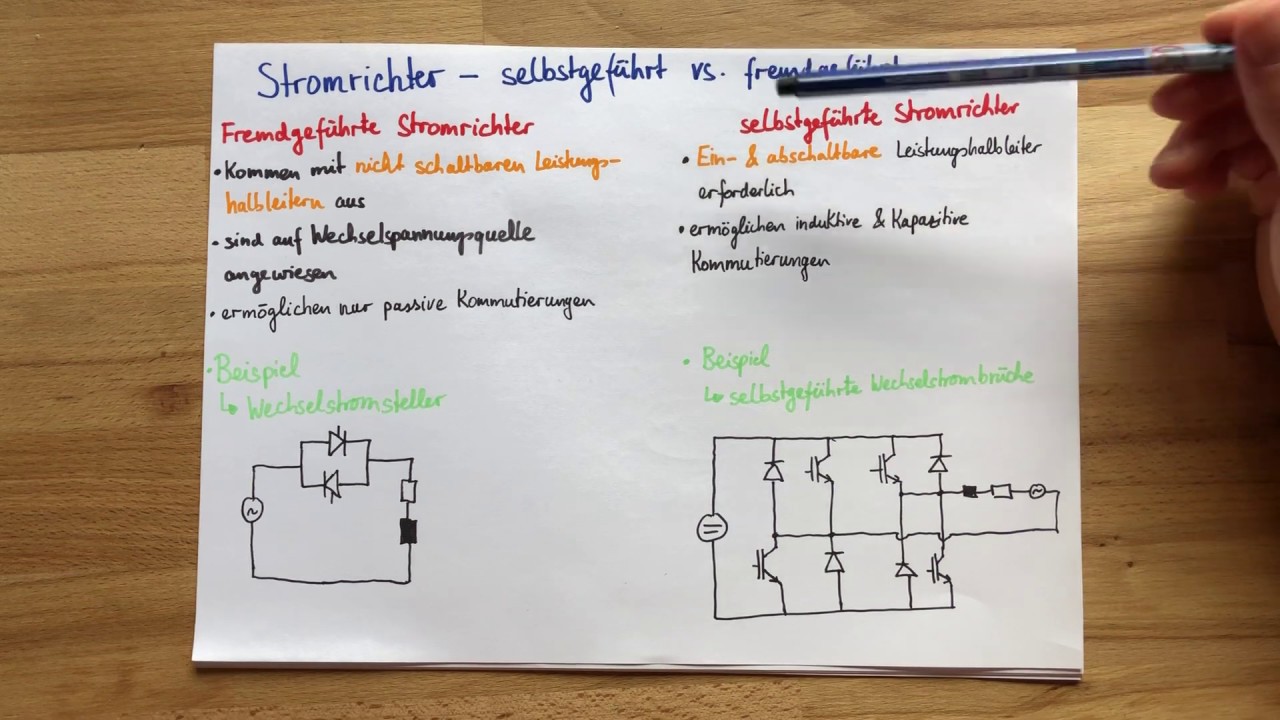 Stromrichter - selbstgeführt vs.
Fremdgeführte Stromrichter
• Kommen mit nicht schaltbaren Leistungs-
halbleitern aus
• sind auf Wechselspannungsquelle
angewiesen
• ermöglichen nur passive Kommutierungen
• Beispiel
↳ Wechselstromsteller
~
selbstgeführte Stromrichter
• Ein- & abschaltbare Leistungshalbleiter
erforderlich
• ermöglichen induktive & Kapazitive
Kommutierungen
• Beispiel
↳ selbstgeführte Wechselstrombrücke
=
~